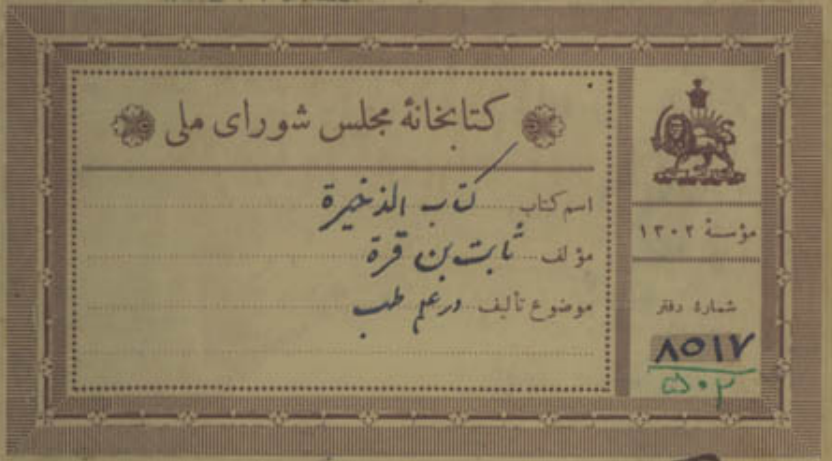 کتابخانهٔ مجلس شورای ملی
اسم کتاب کتاب الذخیرة
مؤلف ثابت بن قرة
موضوع تألیف در علم طب
مؤسسهٔ ۱۳۰۲
شمارهٔ دفتر
۸۵۱۷
۵۵۰۲